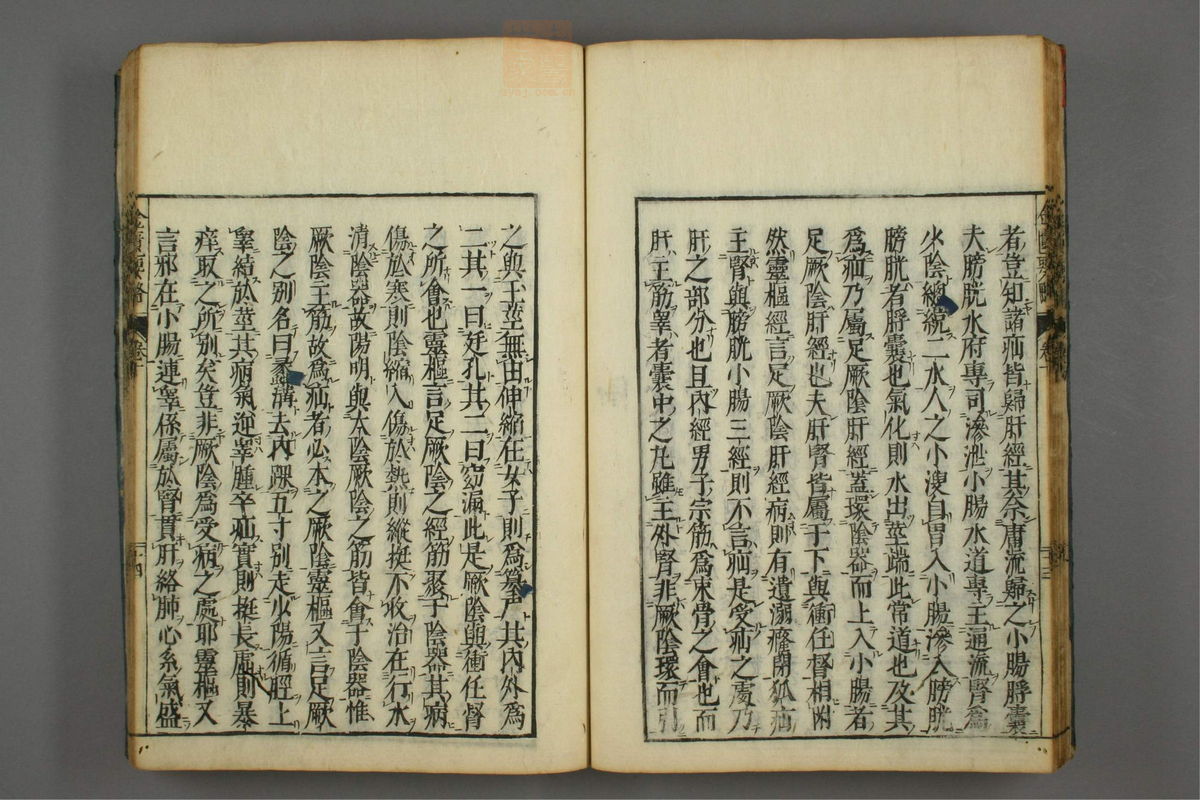 者豈知諸疝皆歸肝經其奈庸流歸之小腸脬囊
夫膀胱水府專司滲泄小腸水道專主通流腎爲
少陰總統二水人之小溲自胃入小腸滲入膀胱
膀胱者脬囊也氣化則水出莖端此常道也及其
爲疝乃屬足厥陰肝經蓋環陰器而上入小腹者
足厥陰肝經也夫肝腎皆屬于下與衝任督相附
然靈樞經言足厥陰肝經病則有遺溺癃閉狐疝
主腎與膀胱小腸三經則不言疝是受疝之處乃
肝之部分也且內經男子宗筋爲束骨之會也而
肝主筋睾者囊中之丸雖主外腎非厥陰環而引
之與于莖無由伸縮在女子則爲纂戶其內外爲
二其一曰廷孔其二曰窈漏此是厥陰與衝任督
之所會也靈樞言足厥陰之經筋聚于陰器其病
傷於寒則陰縮入傷於熱則縱挺不收治在行水
清陰器故陽明與太陰厥陰之筋皆會于陰器惟
厥陰主筋故爲疝者必本之厥陰靈樞又言足厥
陰之別名曰蠡溝去內踝五寸別走少陽循脛上
睾結於莖其病氣逆睾腫卒疝實則挺長虛則暴
痒取之所別矣豈非厥陰爲受病之處耶靈樞又
言邪在小腸連睾係屬於腎貫肝絡肺心系氣盛